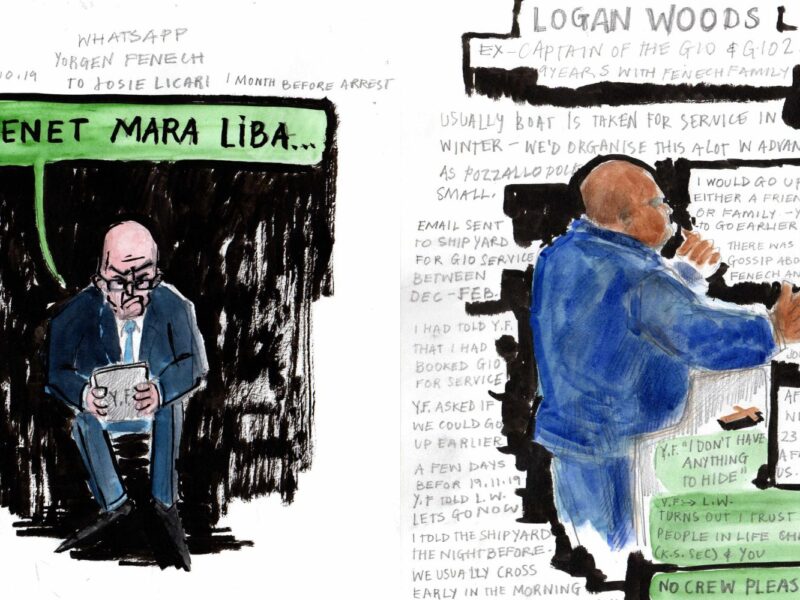 WHATSAPP
YORGEN FENECH
10.19 TO JOSIE LICARI 1 MONTH BEFORE ARREST
ENET MARA LIBA...
Y.F
LOGAN WOODS
EX-CAPTAIN OF THE G10 & G102
9 YEARS WITH FENECH FAMILY
USUALLY BOAT IS TAKEN FOR SERVICE IN
WINTER – WE'D ORGANISE THIS A LOT IN ADVAN
AS POZZALLO
SMALL.
EMAIL SENT
TO SHIPYARD
FOR G10 SERVICE
BETWEEN
DEC–FEB.
I HAD TOLD Y.F.
THAT I HAD
BOOKED G10
FOR SERVICE
Y.F. ASKED IF
WE COULD GO
UP EARLIER
A FEW DAYS
BEFOR 19.11.19
Y.F TOLD L.W.
LETS GO NOW
I TOLD THE SHIPYARD
THE NIGHT BEFORE.
WE USUALLY CROSS
EARLY IN THE MORNING
I WOULD GO UP
EITHER A FRIEN
OR FAMILY –
TO GO EARLIER
THERE WAS
GOSSIP ABO
FENECH AN
JO
AF
N
23
AF
US.
Y.F. "I DON'T HAVE
ANYTHING
TO HIDE"
Y.F → L.W.
TURNS OUT I TRUST
PEOPLE IN LIFE
(K.S. SEC) & YOU
NO CREW PLEAS